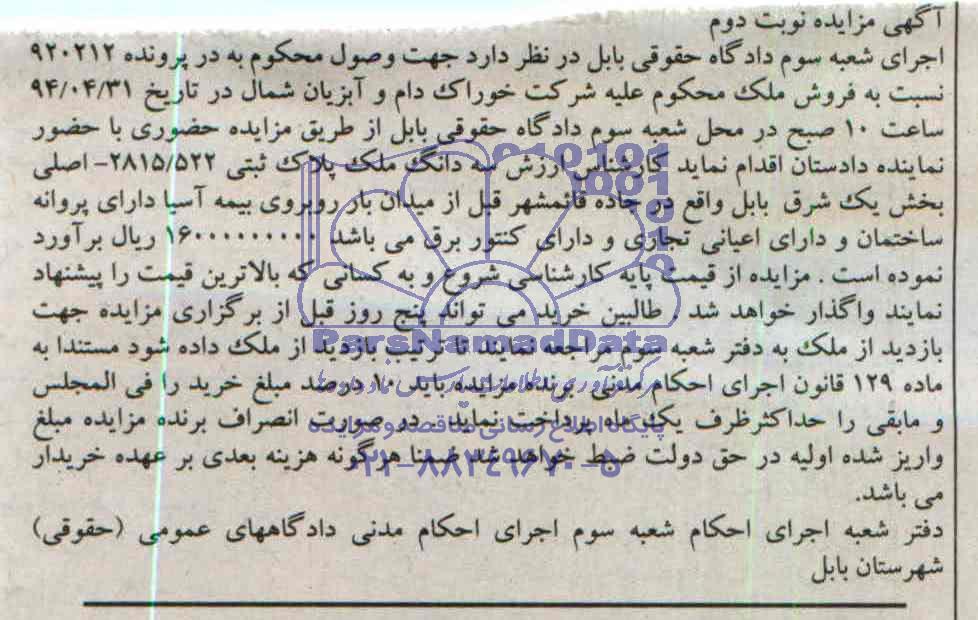 آگهی مزایده نوبت دوم
اجرای شعبه سوم دادگاه حقوقی بابل در نظر دارد جهت وصول محکوم به در پرونده ۹۲۰۲۱۲
نسبت به فروش ملک محکوم علیه شرکت خوراک دام و آبزیان شمال در تاریخ ۹۴/۰۴/۳۱
ساعت ۱۰ صبح در محل شعبه سوم دادگاه حقوقی بابل از طریق مزایده حضوری با حضور
نماینده دادستان اقدام نماید کارشناس ارزش سه دانگ ملک پلاک ثبتی ۲۸۱۵/۵۲۲- اصلی
بخش یک شرق بابل واقع در جاده قائمشهر قبل از میدان بار روبروی بیمه آسیا دارای پروانه
ساختمان و دارای اعیانی تجاری و دارای کنتور برق می باشد ۱۶۰۰۰۰۰۰۰۰۰ ریال برآورد
نموده است . مزایده از قیمت پایه کارشناسی شروع و به کسانی که بالاترین قیمت را پیشنهاد
نمایند واگذار خواهد شد . طالبین خرید می توانند پنج روز قبل از برگزاری مزایده جهت
بازدید از ملک به دفتر شعبه سوم مراجعه نمایند تا ترتیب بازدید از ملک داده شود مستندا به
ماده ۱۲۹ قانون اجرای احکام مدنی برنده مزایده باید ۱۰ درصد مبلغ خرید را فی المجلس
و مابقی را حداکثرظرف یک ماه پرداخت نماید . در صورت انصراف برنده مزایده مبلغ
واریز شده اولیه در حق دولت ضبط خواهد شد ضمنا هرگونه هزینه بعدی بر عهده خریدار
می باشد.
دفتر شعبه اجرای احکام شعبه سوم اجرای احکام مدنی دادگاههای عمومی (حقوقی)
شهرستان بابل
ParsNamadData
پایگاه اطلاع رسانی مناقصه و مزایده
۰۲۱-۸۸۳۴۹۶۷۰-۵